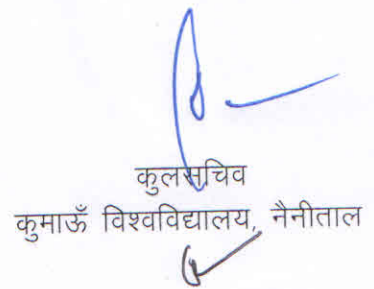 कुलसचिव
कुमाऊँ विश्वविद्यालय, नैनीताल